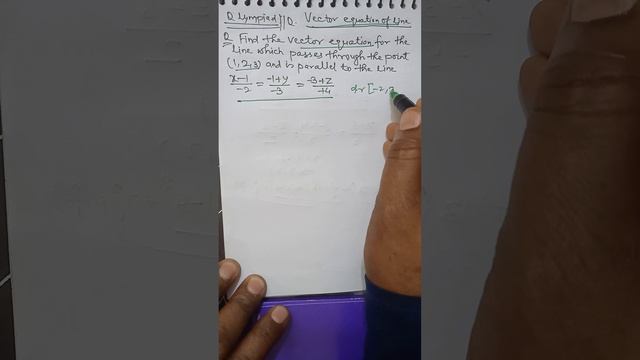 Olympiad || Q. Vector equation of line
Q Find the vector equation for the
line which passes through the point
(1,2,3) and is parallel to the line
x-1/-2 = -1+y/-3 = -3+z/+4 dr [-2,